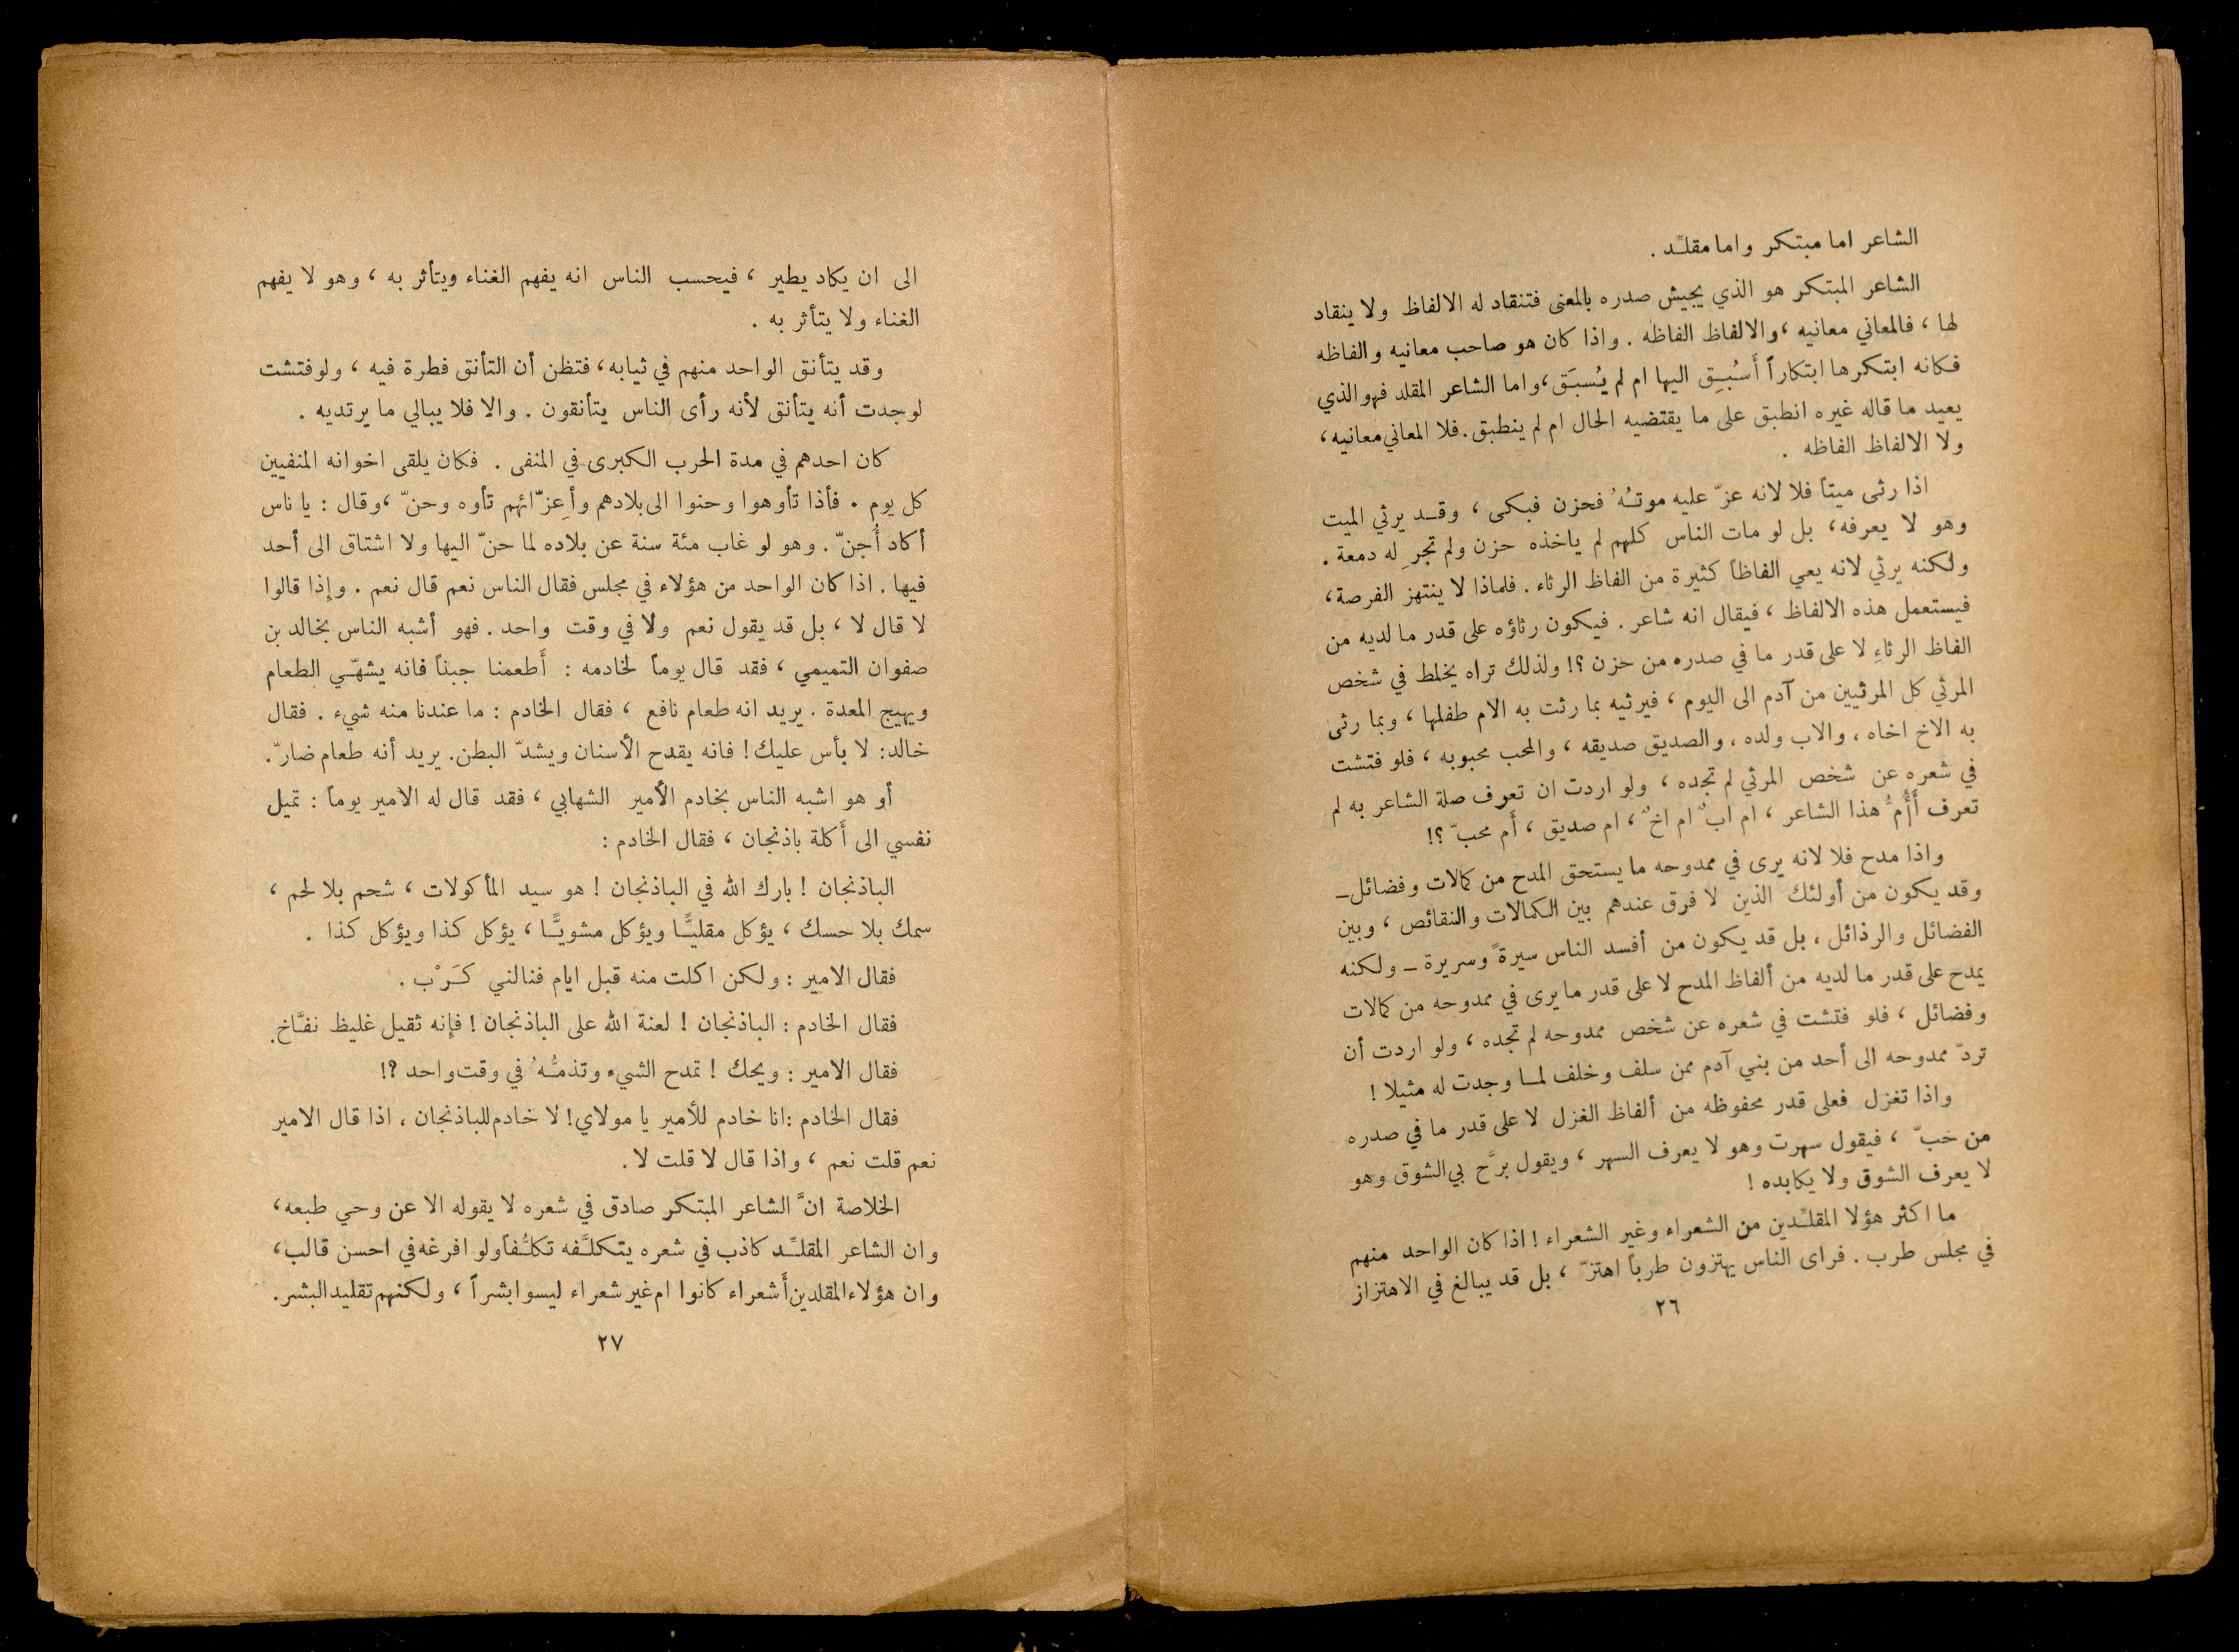 الشاعر اما مبتكر واما مقلِّد .
الشاعر المبتكر هو الذي يجيش صدره بالمعنى فتنقاد له الالفاظ ولا ينقاد
لها ، فالمعاني معانيه ، والالفاظ الفاظه . واذا كان هو صاحب معانيه والفاظه
فكانه ابتكرها ابتكاراً أَسُبِق اليها ام لم يُسبَق ، واما الشاعر المقلد فهو الذي
يعيد ما قاله غيره انطبق على ما يقتضيه الحال ام لم ينطبق . فلا المعاني معانيه ،
ولا الالفاظ الفاظه .
اذا رثى ميتاً فلا لانه عزّ عليه موتُهُ فحزن فبكى ، وقد يرثي الميت
وهو لا يعرفه ، بل لو مات الناس كلهم لم ياخذه حزن ولم تجرِ له دمعة .
ولكنه يرثي لانه يعي الفاظاً كثيرة من الفاظ الرثاء . فلماذا لا ينتهز الفرصة ،
فيستعمل هذه الالفاظ ، فيقال انه شاعر . فيكون رثاؤه على قدر ما لديه من
الفاظ الرثاءِ لا على قدر ما في صدره من حزن ؟! ولذلك تراه يخلط في شخص
المرثي كل المرثيين من آدم الى اليوم ، فيرثيه بما رثت به الام طفلها ، وبما رثى
به الاخ اخاه ، والاب ولده ، والصديق صديقه ، والمحب محبوبه ، فلو فتشت
في شعره عن شخص المرثي لم تجده ، ولو اردت ان تعرف صلة الشاعر به لم
تعرف أَأُمٌّ هذا الشاعر ، ام ابٌ ام اخٌ ، ام صديق ، أَم محبّ ؟!
واذا مدح فلا لانه يرى في ممدوحه ما يستحق المدح من كمالات وفضائل –
وقد يكون من أولئك الذين لا فرق عندهم بين الكمالات والنقائص ، وبين
الفضائل والرذائل ، بل قد يكون من أفسد الناس سيرةً وسريرة – ولكنه
يمدح على قدر ما لديه من ألفاظ المدح لا على قدر ما يرى في ممدوحه من كمالات
وفضائل ، فلو فتشت في شعره عن شخص ممدوحه لم تجده ، ولو اردت أن
تردّ ممدوحه الى أحد من بني آدم ممن سلف وخلف لما وجدت له مثيلا !
واذا تغزل فعلى قدر محفوظه من ألفاظ الغزل لا على قدر ما في صدره
من حبّ ، فيقول سهرت وهو لا يعرف السهر ، ويقول برَّح بي الشوق وهو
لا يعرف الشوق ولا يكابده !
ما اكثر هؤلا المقلِّدين من الشعراء وغير الشعراء ! اذا كان الواحد منهم
في مجلس طرب . فراى الناس يهتزون طرباً اهتزّ ، بل قد يبالغ في الاهتزاز
٢٦
الى ان يكاد يطير ، فيحسب الناس انه يفهم الغناء ويتأثر به ، وهو لا يفهم
الغناء ولا يتأثر به .
وقد يتأنق الواحد منهم في ثيابه ، فتظن أن التأنق فطرة فيه ، ولو فتشت
لوجدت أنه يتأنق لأنه رأى الناس يتأنقون . والا فلا يبالي ما يرتديه .
كان احدهم في مدة الحرب الكبرى في المنفى . فكان يلقى اخوانه المنفيين
كل يوم . فأذا تأوهوا وحنوا الى بلادهم وأعِزّائهم تأوه وحنّ ، وقال : يا ناس
أكاد أُجنّ . وهو لو غاب مئة سنة عن بلاده لما حنّ اليها ولا اشتاق الى أحد
فيها . اذا كان الواحد من هؤلاء في مجلس فقال الناس نعم قال نعم . وإذا قالوا
لا قال لا ، بل قد يقول نعم ولا في وقت واحد . فهو أشبه الناس بخالد بن
صفوان التميمي ، فقد قال يوماً لخادمه : أَطعمنا جبناً فانه يشهّي الطعام
ويهيج المعدة . يريد انه طعام نافع ، فقال الخادم : ما عندنا منه شيء . فقال
خالد : لا بأس عليك ! فانه يقدح الأسنان ويشدّ البطن . يريد أنه طعام ضارّ .
أو هو اشبه الناس بخادم الأمير الشهابي ، فقد قال له الامير يوماً : تميل
نفسي الى أَكلة باذنجان ، فقال الخادم :
الباذنجان ! بارك الله في الباذنجان ! هو سيد المأكولات ، شحم بلا لحم ،
سمك بلا حسك ، يؤكل مقليًّا ويؤكل مشويًّا ، يؤكل كذا ويؤكل كذا .
فقال الامير : ولكن اكلت منه قبل ايام فنالني كَرْب .
فقال الخادم : الباذنجان ! لعنة الله على الباذنجان ! فإِنه ثقيل غليظ نفَّاخ .
فقال الامير : ويحك ! تمدح الشيء وتذمُّهُ في وقت واحد ؟!
فقال الخادم : انا خادم للأمير يا مولاي ! لا خادم للباذنجان ، اذا قال الامير
نعم قلت نعم ، واذا قال لا قلت لا .
الخلاصة انَّ الشاعر المبتكر صادق في شعره لا يقوله الا عن وحي طبعه ،
وان الشاعر المقلِّد كاذب في شعره يتكلَّفه تكلُّفاً ولو افرغه في احسن قالب ،
وان هؤلاء المقلدين أَشعراء كانوا ام غير شعراء ليسوا بشراً ، ولكنهم تقليد البشر .
٢٧